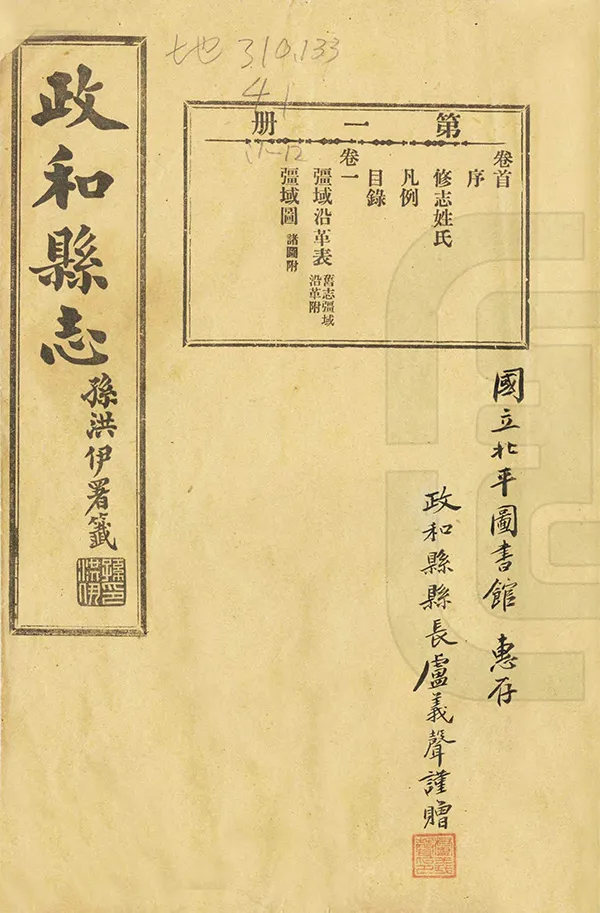 地 310.133
41
1-12
第一册
卷首
序
修志姓氏
凡例
目錄
卷一
疆域沿革表 舊志疆域沿革附
疆域圖 諸圖附
國立北平圖書館 惠存
政和縣縣長盧義聲謹贈
政和縣志
孫洪伊署籤
孫洪伊印